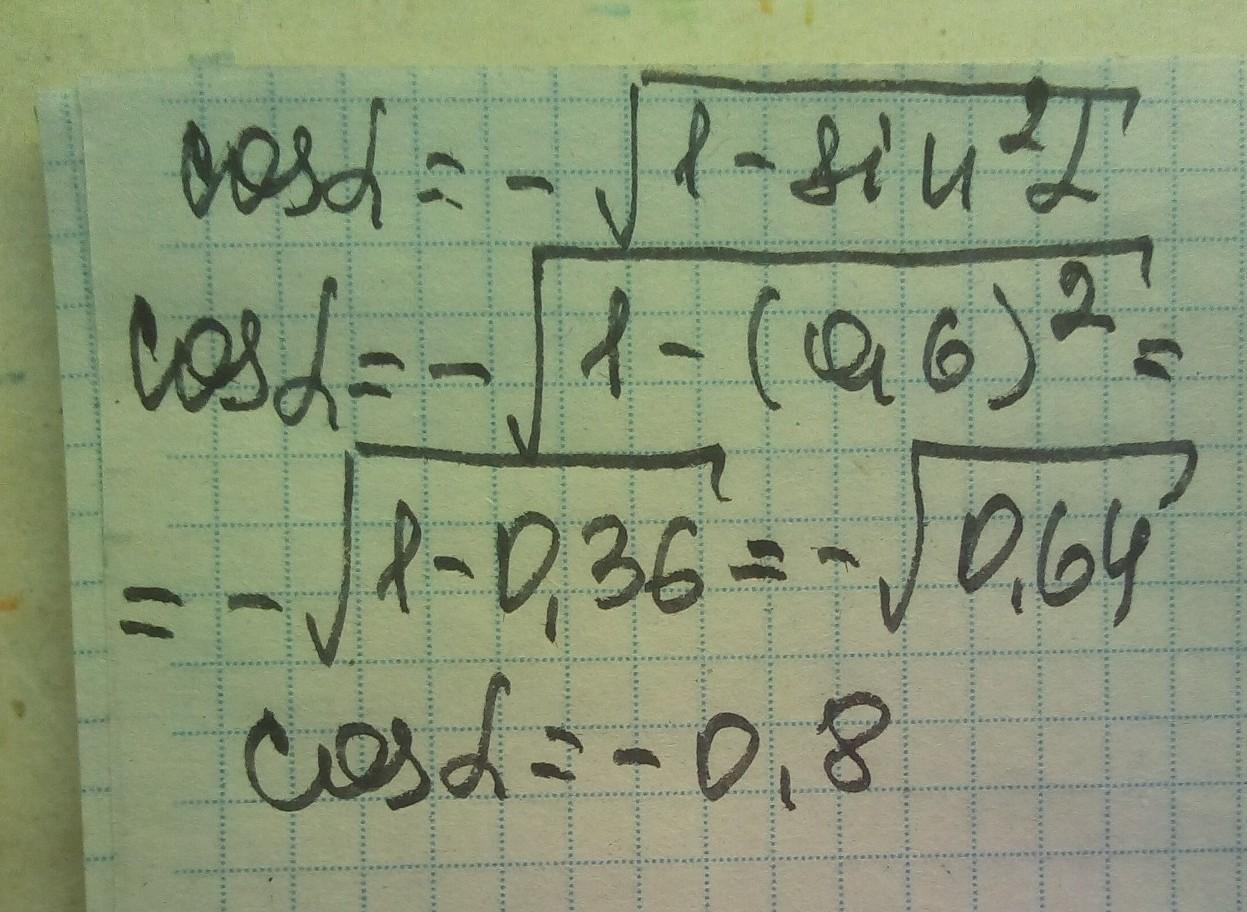 cosα = - √1 - sin²α
cosα = - √1 - (0,6)² =
= - √1 - 0,36 = - √0,64
cosα = - 0,8